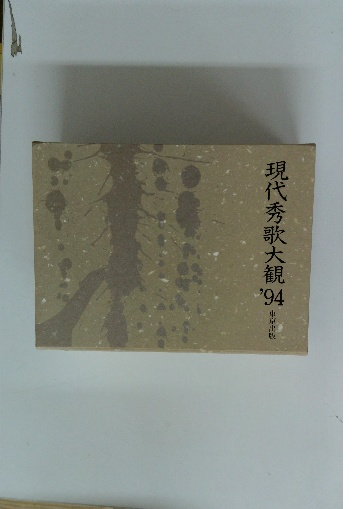 現代秀歌大観'94
東京出版